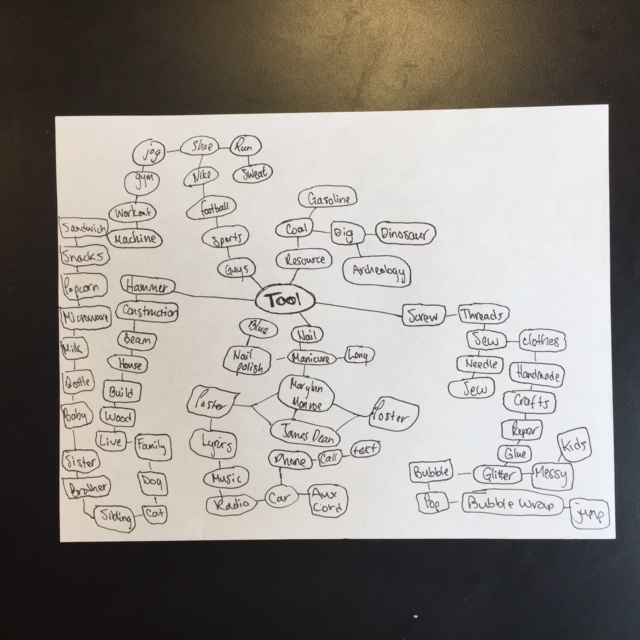 jog
Shoe
Run
gym
Nike
Sweat
Gasoline
Workout
football
Sandwich
Coal
Dig
Dinosaur
Machine
Sports
Snacks
Resource
Archeology
Guys
Popcorn
Hammer
Tool
Construction
Screw
Threads
Microwave
Blue
Nail
Beam
Sew
Clothes
Milk
Nail
Polish
Manicure
Long
House
Needle
Handmade
Bottle
Build
Marylin
Monroe
Sew
Poster
Poster
Crafts
Baby
Wood
James Dean
Paper
Live
Family
Lyrics
Kids
Phone
Call
text
Glue
Sister
Bubble
Glitter
Messy
Music
Dog
Brother
Radio
Car
Aux
Cord
Pop
Bubble Wrap
jump
Sibling
Cat